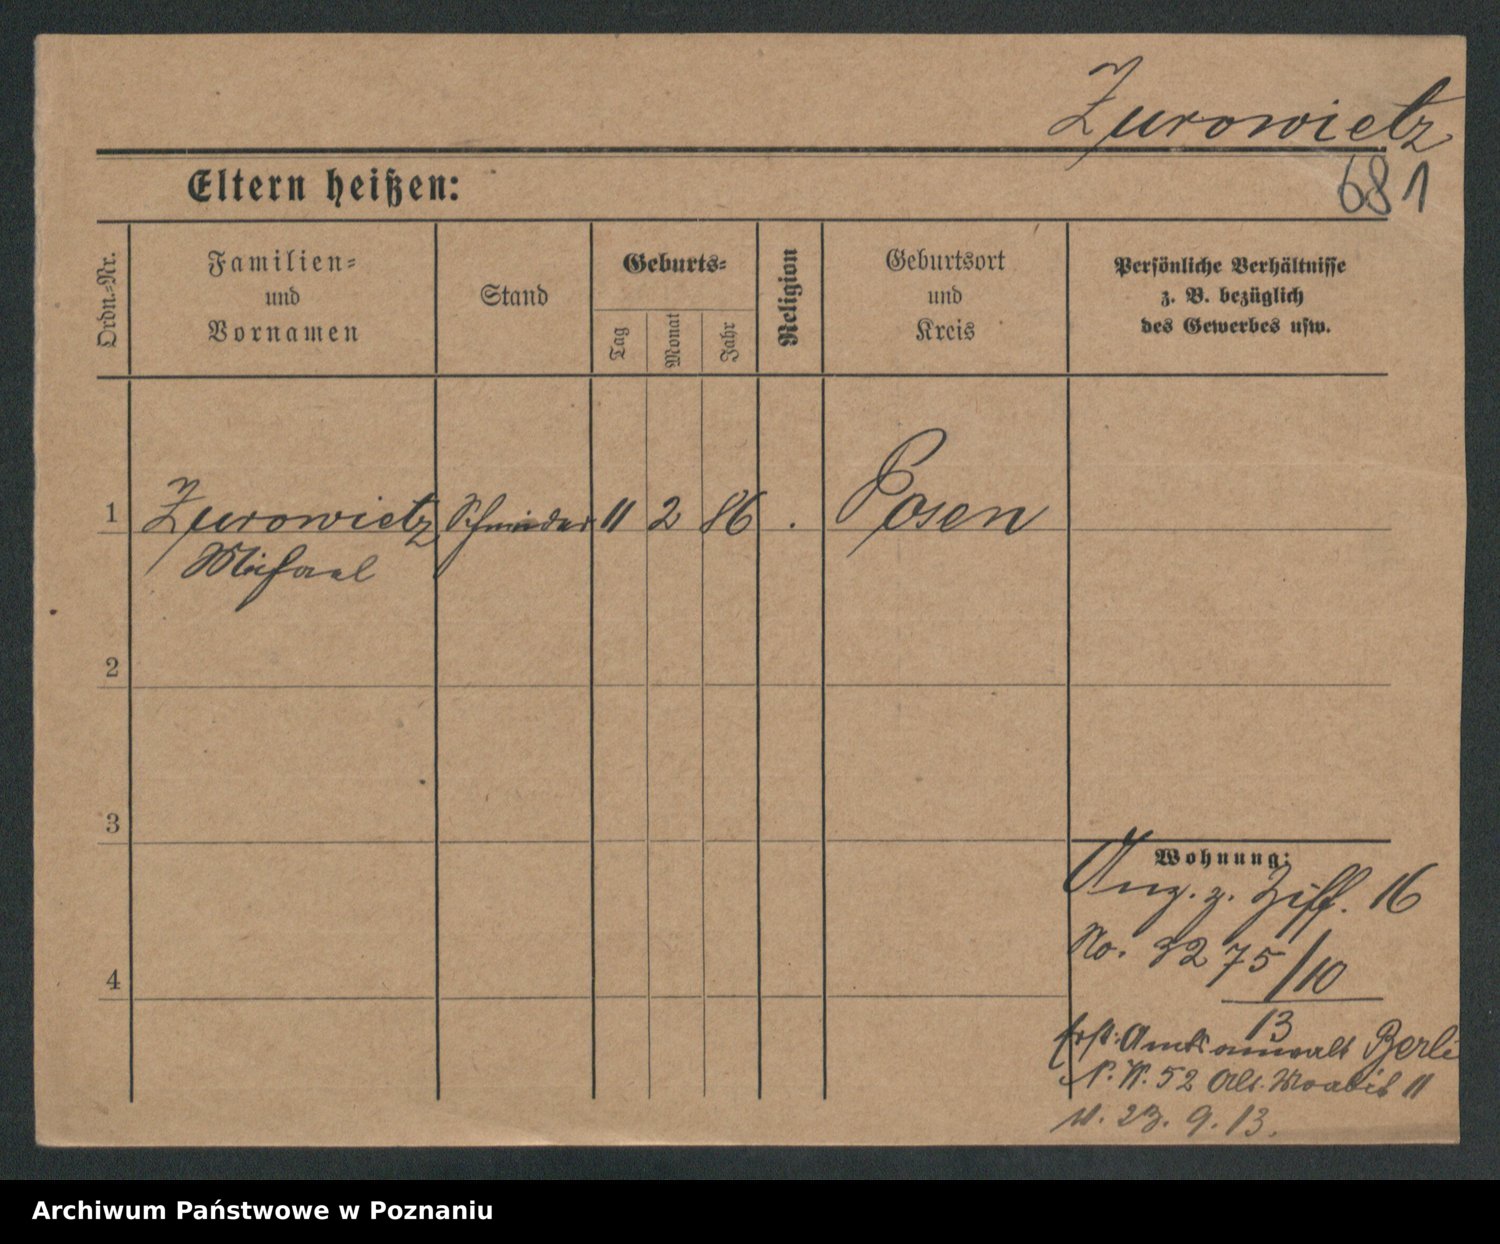 Zurowietz
681
Eltern heißen:
Ordn.-Nr.
Familien-
und
Vornamen
Stand
Geburts-
Tag
Monat
Jahr
Religion
Geburtsort
und
Kreis
Persönliche Verhältnisse
z. B. bezüglich
des Gewerbes usw.
1 Zurowietz Schneider 11 2 86 . Posen
Michael
2
3
4
Wohnung:
Anz. z. Ziff. 16
No. 3275/10
13
Amtsanwalt Berli
N. W. 52 Alt Moabit 11
v. 23. 9. 13.
Archiwum Państwowe w Poznaniu